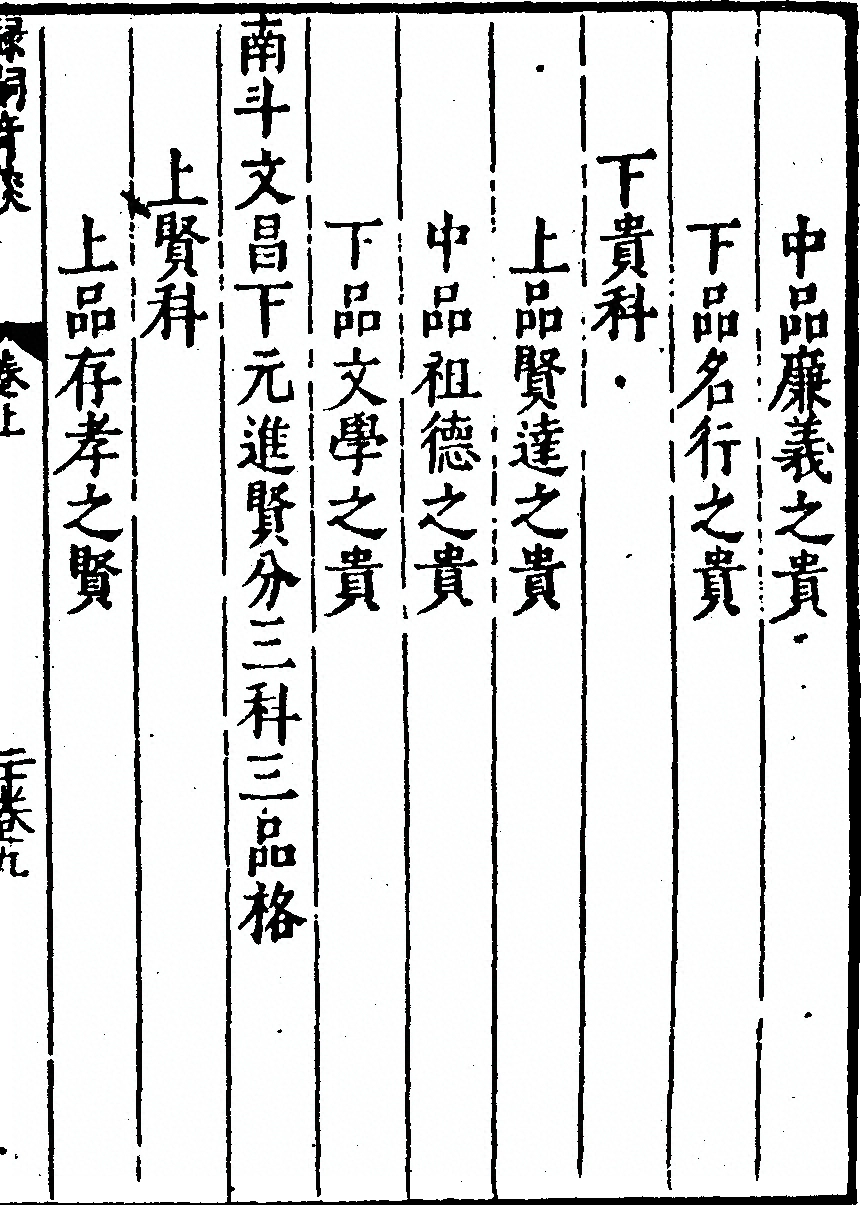 中品廉義之貴
下品名行之貴
下貴科
上品賢達之貴
中品祖德之貴
下品文學之貴
南斗文昌下元進賢分三科三品格
上賢科
上品存孝之賢
卷上